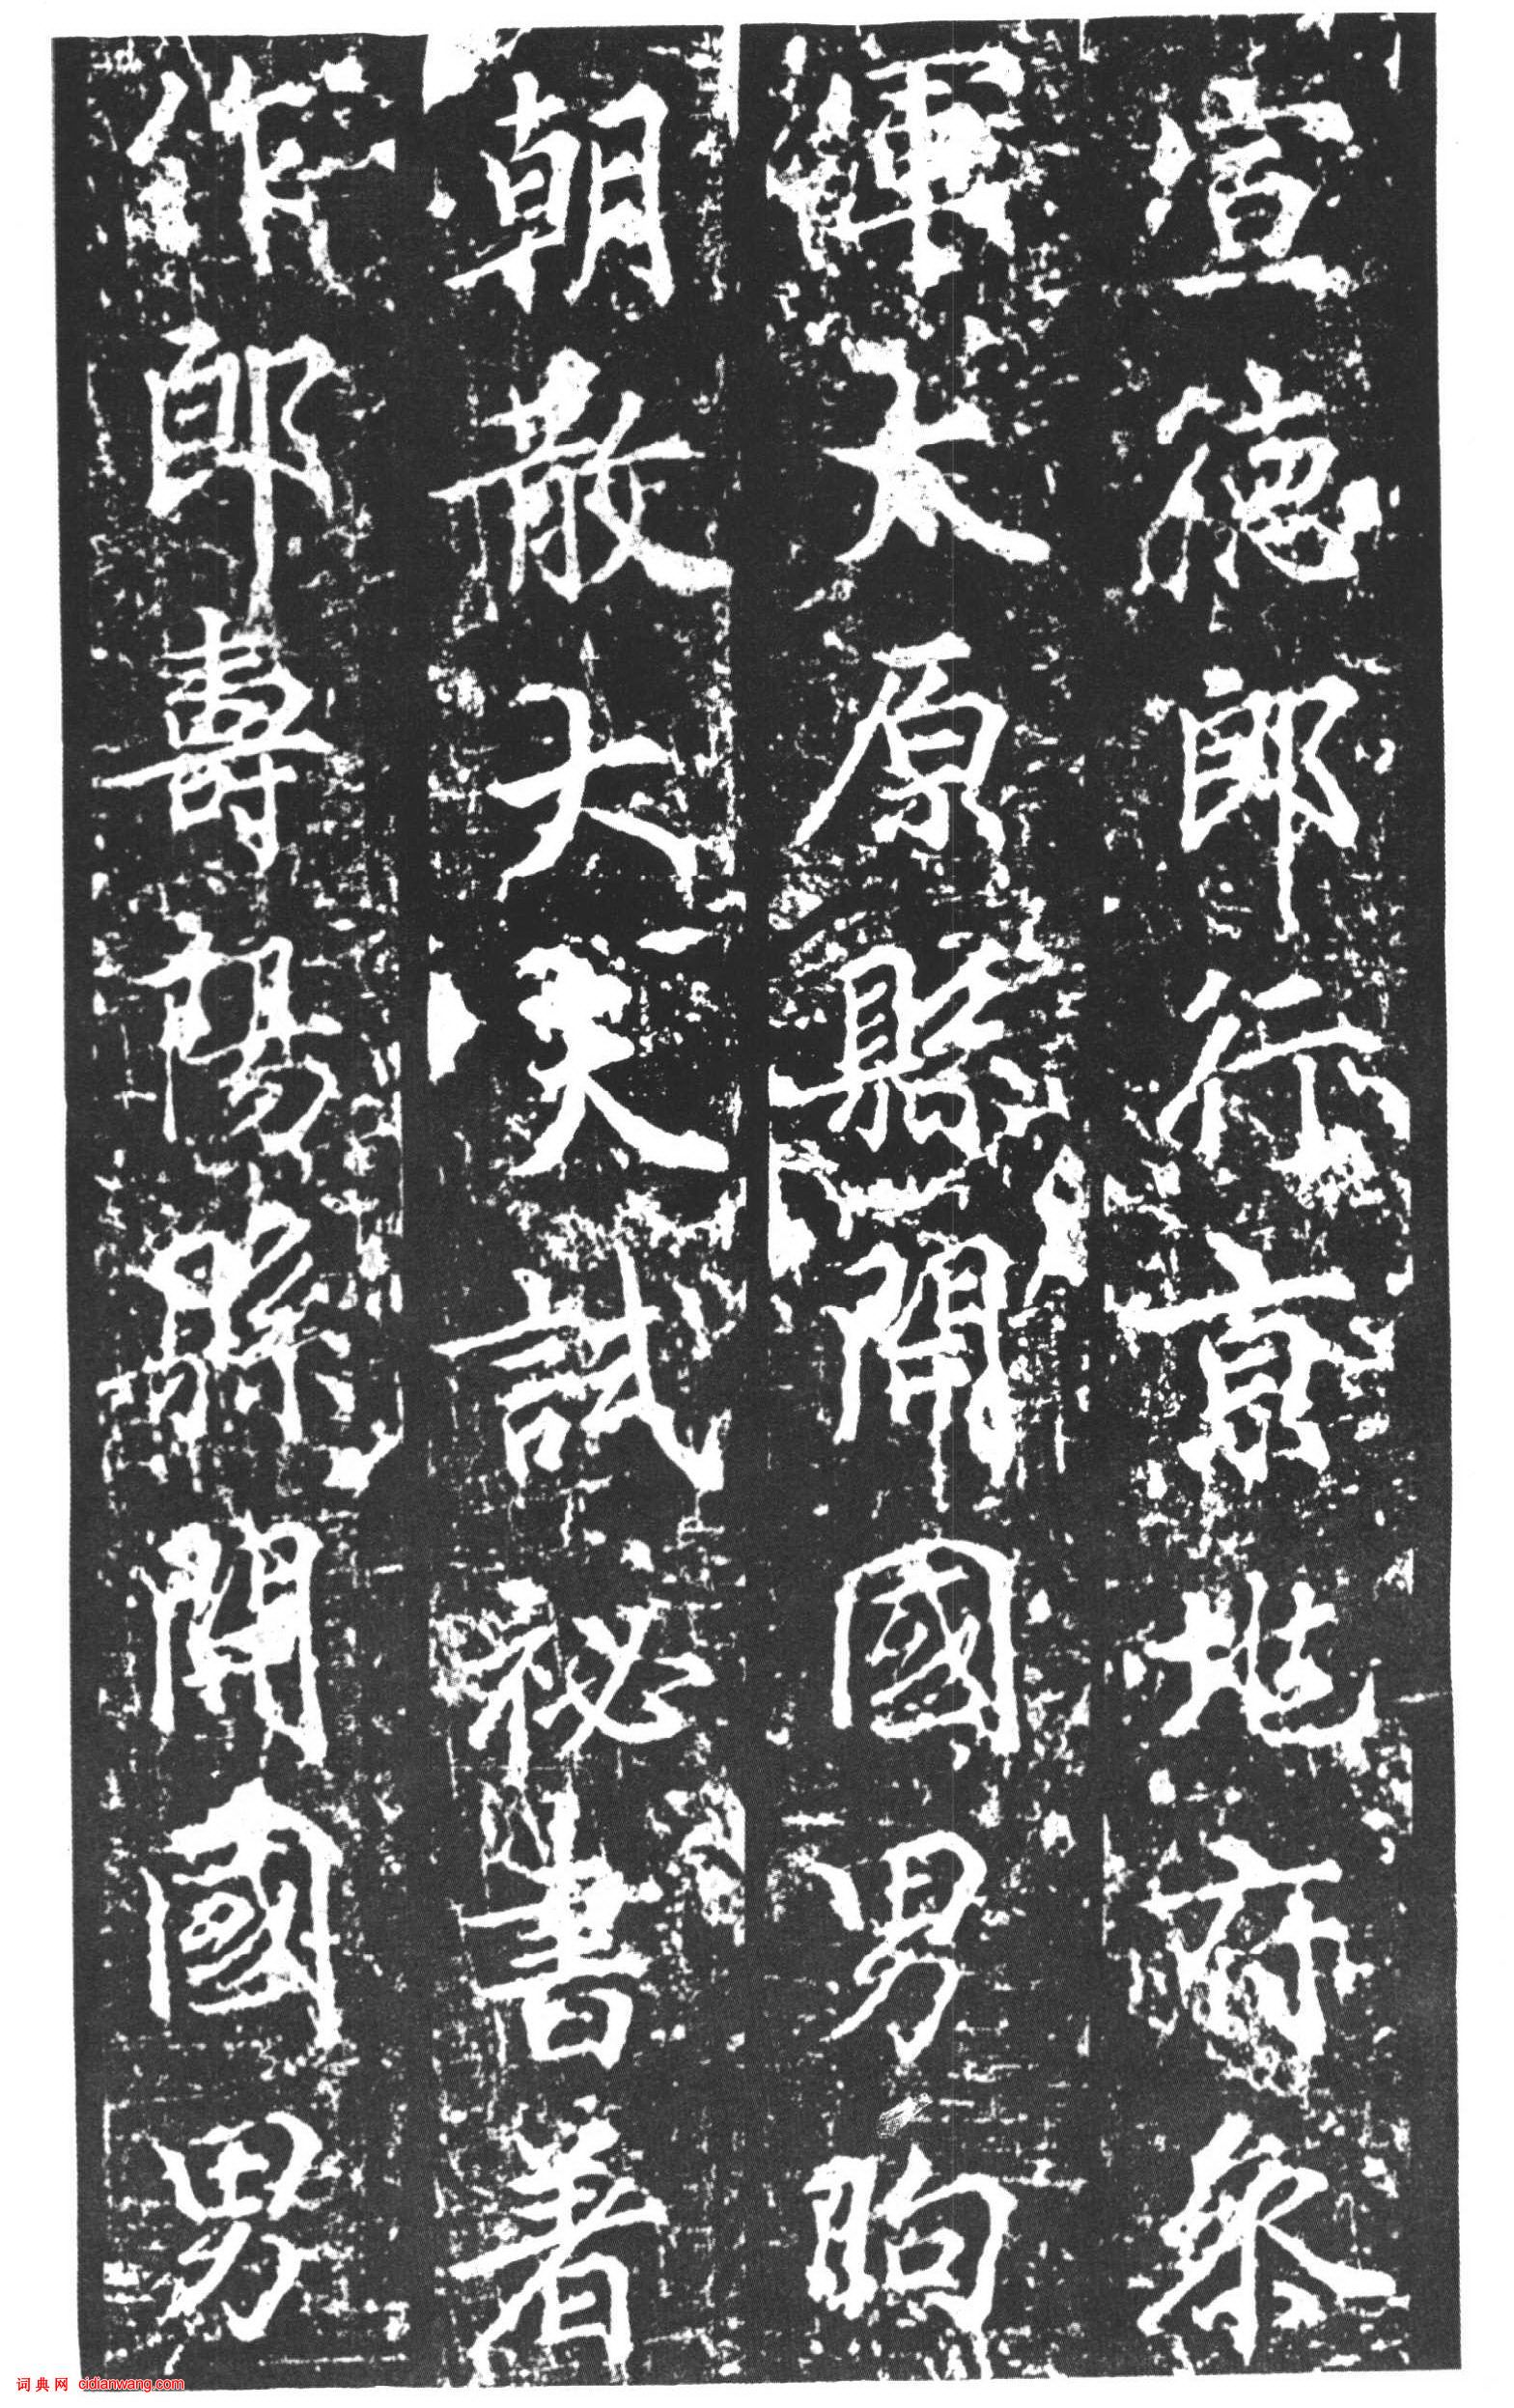 宣德郎行京地府叅
軍太原縣開國男昫
朝散大夫試祕書著
作郎壽陽縣開國男
词典网 cidianwang.com